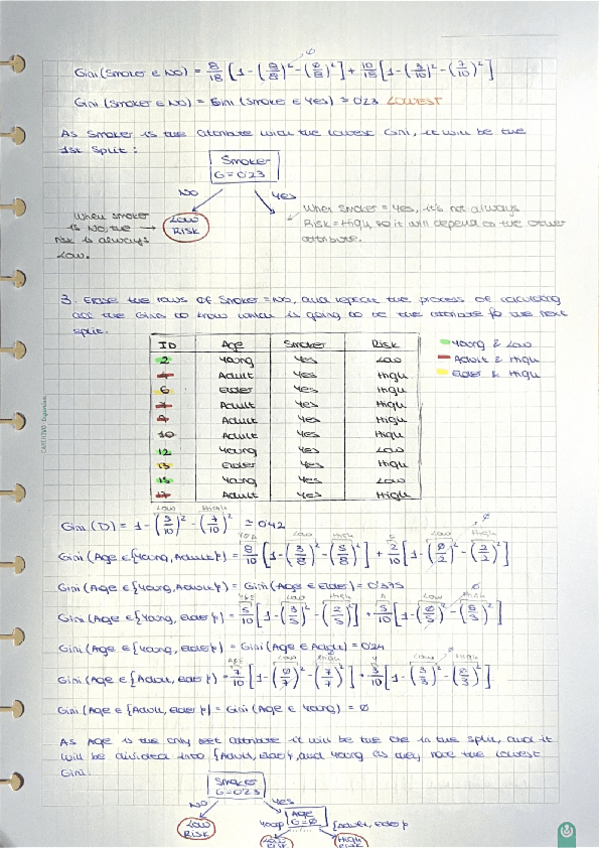 Gini (Smoker ∈ NO) = 8/18 [1-(8/8)²-(0/8)²] + 10/18 [1-(3/10)²-(7/10)²]
Gini (Smoker ∈ NO) = Gini (Smoke ∈ Yes) ≃ 0'23 LOWEST
As Smoker is the attribute with the lowest Gini, it will be the
1st Split:
Smoker
G=0'23
NO
Yes
When smoker
is NO, the
risk is always
Low.
LOW
RISK
When Smoker = Yes, it's not always
Risk = High so it will depend on the other
attribute.
3. Erase the rows of Smoker = NO, and repeat the process of calculating
all the Ginis to know which is going to be the attribute for the next
split.
ID Age Smoker Risk
2 Young Yes Low
4 Adult Yes High
6 Elder Yes High
7 Adult Yes High
9 Adult Yes High
10 Adult Yes High
12 Young Yes Low
13 Elder Yes High
15 Young Yes Low
17 Adult Yes High
Young & Low
Adult & High
Elder & High
Low High
Gini (D) = 1-(3/10)²-(7/10)² ≃ 0'42
Low High Low High Ø
Gini (Age ∈ {Young, Adult}) = 8/10 [1-(3/8)²-(5/8)²] + 2/10 [1-(0/2)²-(2/2)²]
Gini (Age ∈ {Young, Adult}) = Gini (Age ∈ Elder) = 0'375
Yes Low High Low High Ø
Gini (Age ∈ {Young, Elder}) = 5/10 [1-(3/5)²-(2/5)²] + 5/10 [1-(0/5)²-(5/5)²]
Gini (Age ∈ {Young, Elder}) = Gini (Age ∈ Adult) = 0'24
Low High Low High Ø
Gini (Age ∈ {Adult, Elder}) = 7/10 [1-(0/7)²-(7/7)²] + 3/10 [1-(3/3)²-(0/3)²]
Gini (Age ∈ {Adult, Elder}) = Gini (Age ∈ Young) = Ø
As Age is the only left attribute it will be the one in the split, and it
will be divided into {Adult, Elder}, and Young as they have the lowest
Gini.
Smoker
G=0'23
NO
Yes
LOW
RISK
Age
G=Ø
Young
{Adult, Elder}
LOW
RISK
HIGH
RISK